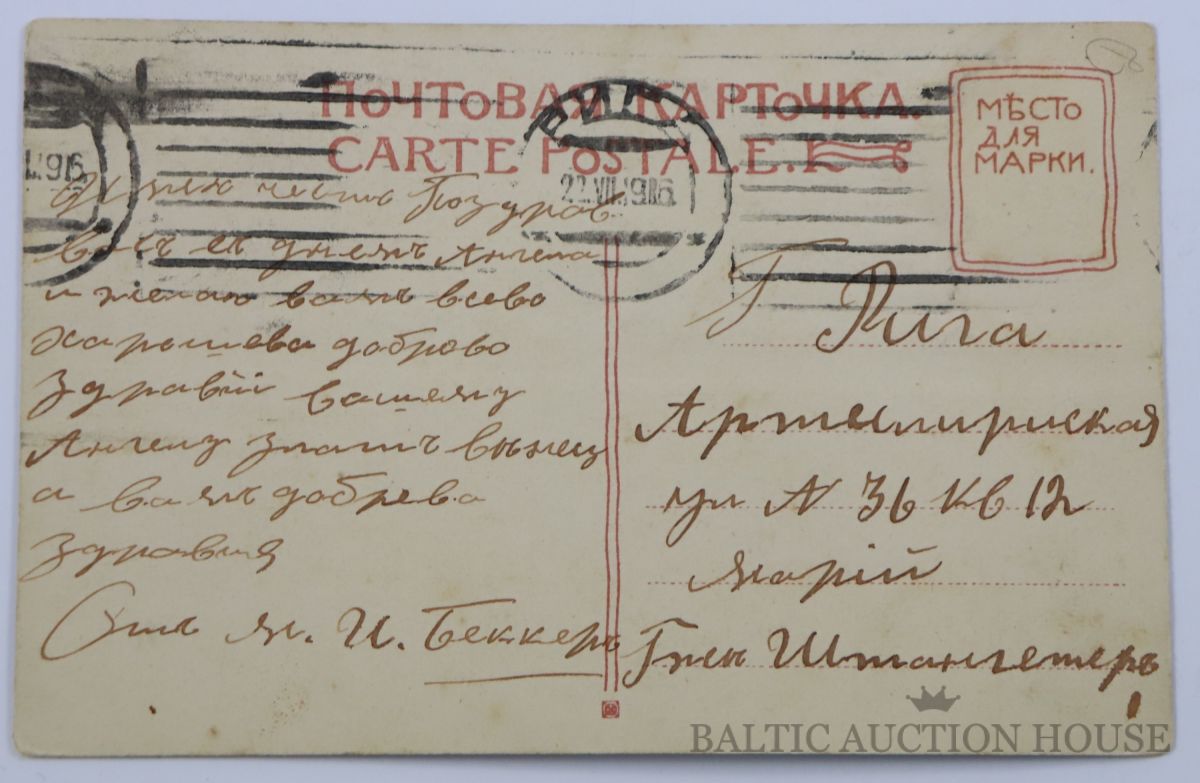 ПОЧТОВАЯ КАРТОЧКА.
CARTE POSTALE.
МѢСТО
ДЛЯ
МАРКИ.
РИГА
22.VII.1916
.1916
Имею честь Поздров
васъ съ днемъ Ангела
и желаю вамъ всево
харошева доброво
здравiй вашему
Ангелу злотъ вѣнец
а вамъ добрева
здравия
Отъ М. И. Беккеръ
Г Рига
Артилириская
ул № 36 кв 12
Марiй
Гжи Штангетеръ
BALTIC AUCTION HOUSE